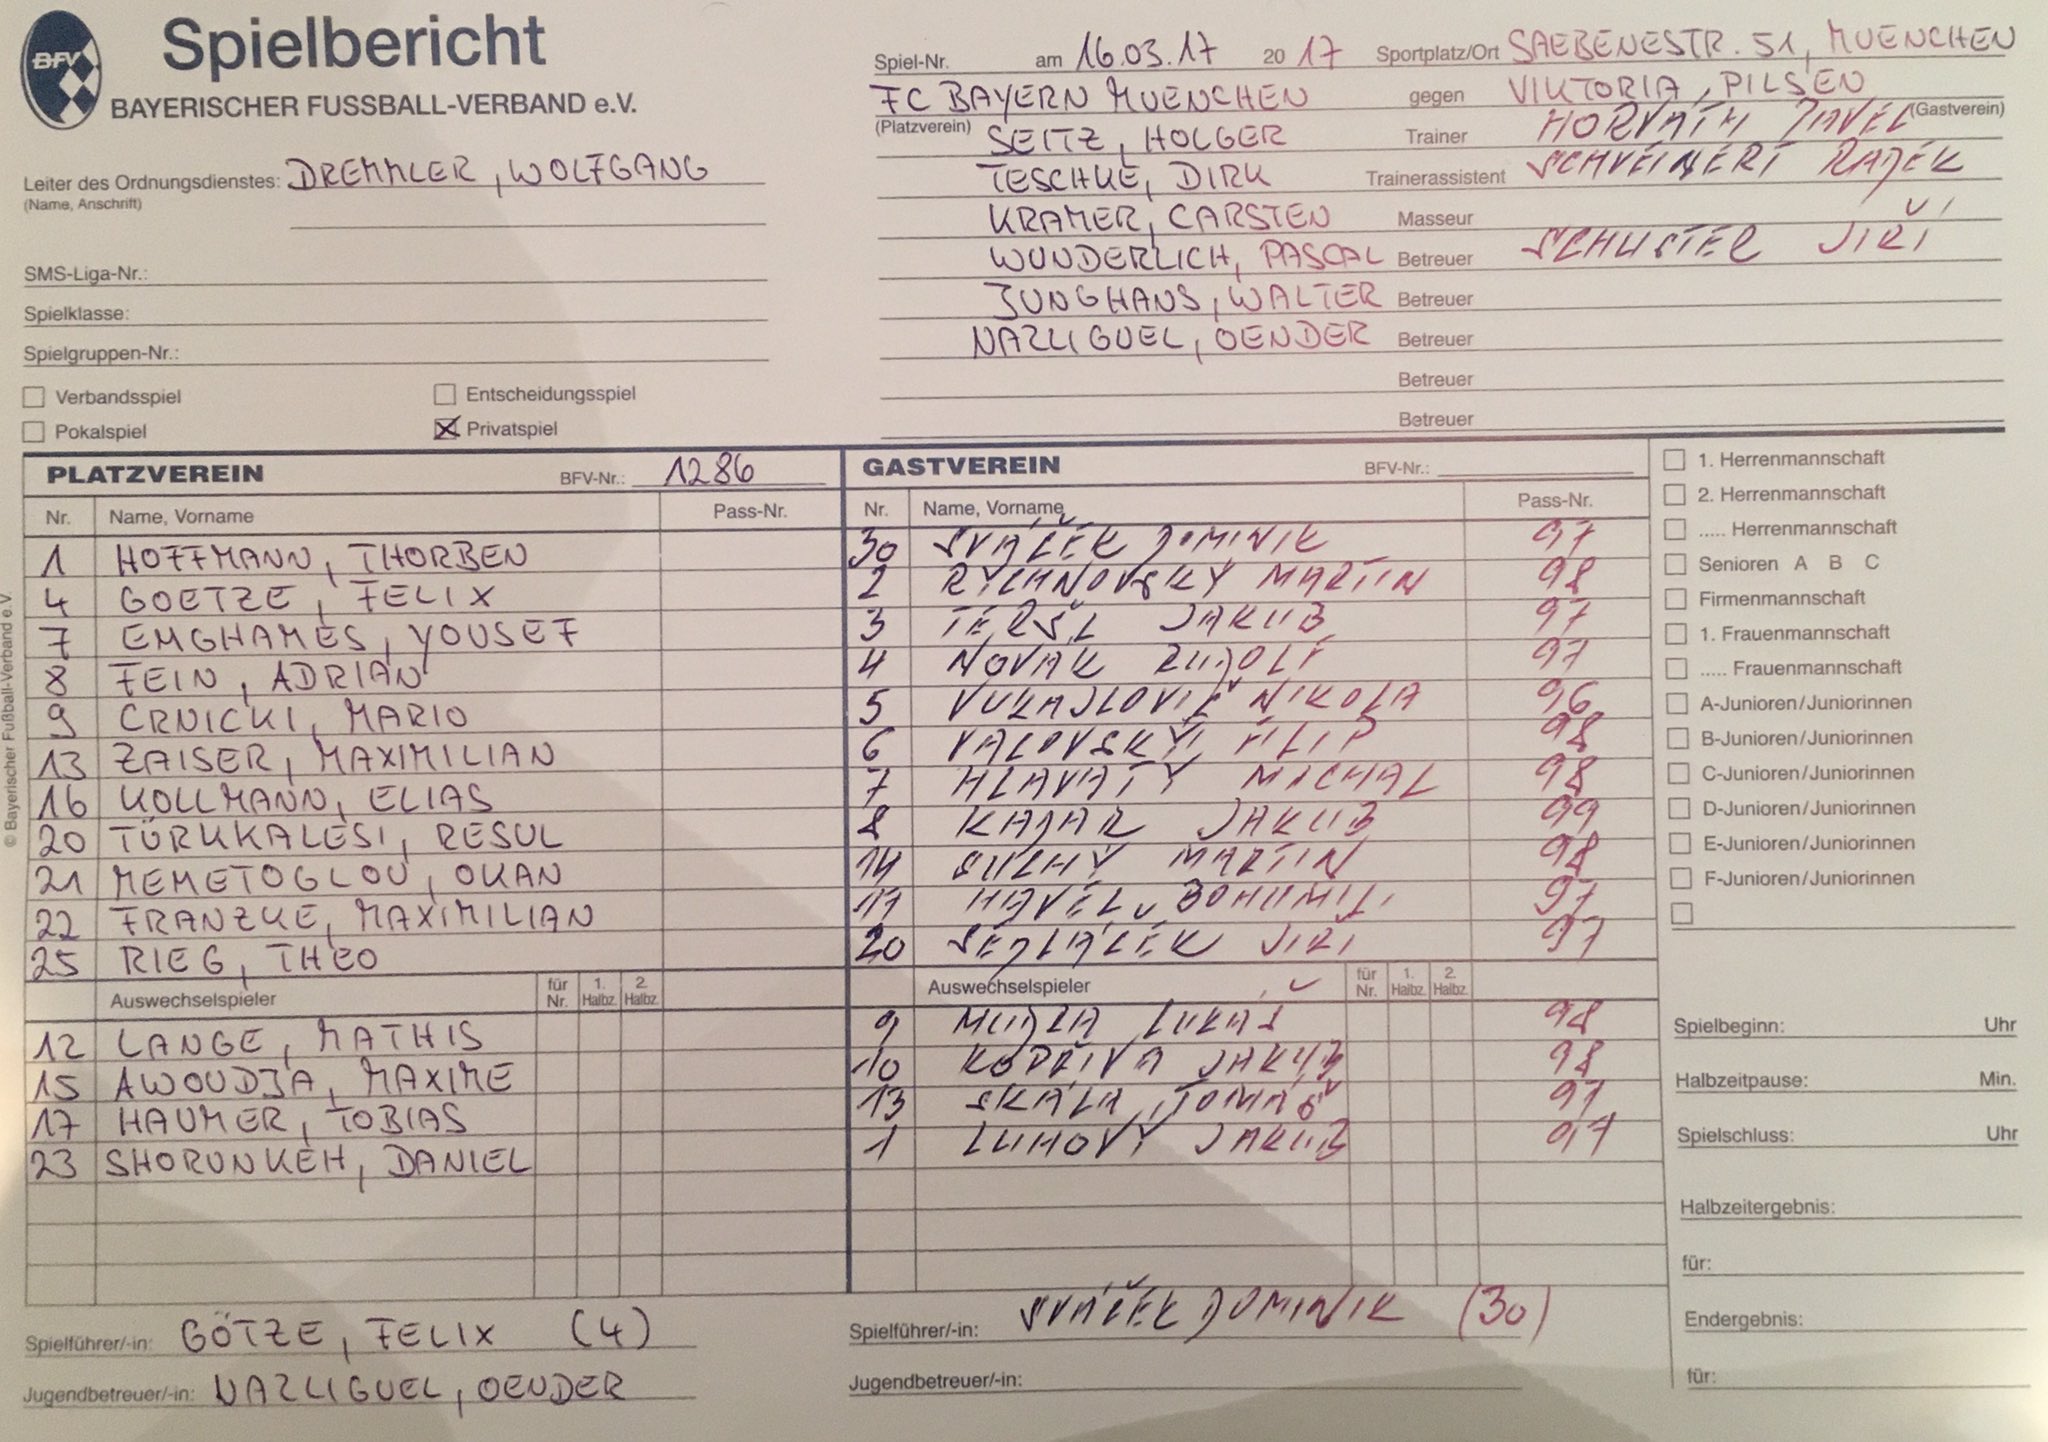 BFV Spielbericht
BAYERISCHER FUSSBALL-VERBAND e.V.
Spiel-Nr. am 16.03.17 20 17 Sportplatz/Ort SAEBENESTR. 51, MUENCHEN
FC BAYERN MUENCHEN gegen VIKTORIA, PILSEN
(Platzverein) (Gastverein)
SEITZ, HOLGER Trainer HORVÁTH PAVEL
Leiter des Ordnungsdienstes: DREMMLER, WOLFGANG
(Name, Anschrift)
TESCHKE, DIRK Trainerassistent RADEK
KRAMER, CARSTEN Masseur
WUNDERLICH, PASCAL Betreuer SCHUSTER JIŘÍ
JUNGHANS, WALTER Betreuer
NAZLIGUEL, OENDER Betreuer
Betreuer
Betreuer
SMS-Liga-Nr.:
Spielklasse:
Spielgruppen-Nr.:
Verbandsspiel Entscheidungsspiel
Pokalspiel Privatspiel
PLATZVEREIN BFV-Nr.: 1286
Nr. Name, Vorname Pass-Nr.
1 HOFFMANN, THORBEN
4 GOETZE, FELIX
7 EMGHAMES, YOUSEF
8 FEIN, ADRIAN
9 CRNICKI, MARIO
13 ZAISER, MAXIMILIAN
16 KOLLMANN, ELIAS
20 TÜRKKALESI, RESUL
21 MEMETOGLOU, OKAN
22 FRANZKE, MAXIMILIAN
25 RIEG, THEO
Auswechselspieler für Nr. 1. Halbz. 2. Halbz.
12 LANGE, MATHIS
15 AWOUDJA, MAXIME
17 HAUMER, TOBIAS
23 SHORUNKEH, DANIEL
Spielführer/-in: GÖTZE, FELIX (4)
Jugendbetreuer/-in: NAZLIGUEL, OENDER
GASTVEREIN BFV-Nr.:
Nr. Name, Vorname Pass-Nr.
30 SVÁČEK DOMINIK 97
2 RYCHNOVSKÝ MARTIN 98
3 TERŠL JAKUB 97
4 NOVÁK RUDOLF 97
5 VUKAJLOVIČ NIKOLA 96
6 VALOVSKÝ FILIP 98
7 HLAVATÝ MICHAL 98
8 KADAR JAKUB 99
14 SUCHÝ MARTIN 98
17 HAVEL BOHUMIL 97
20 SEDLÁČEK JIŘÍ 97
Auswechselspieler für Nr. 1. Halbz. 2. Halbz.
9 LUKÁŠ 98
10 KOPŘIVA JAKUB 98
13 SKÁLA, TOMÁŠ 97
1 LUHOVÝ JAKUB 97
Spielführer/-in: SVÁČEK DOMINIK (30)
Jugendbetreuer/-in:
1. Herrenmannschaft
2. Herrenmannschaft
..... Herrenmannschaft
Senioren A B C
Firmenmannschaft
1. Frauenmannschaft
..... Frauenmannschaft
A-Junioren/Juniorinnen
B-Junioren/Juniorinnen
C-Junioren/Juniorinnen
D-Junioren/Juniorinnen
E-Junioren/Juniorinnen
F-Junioren/Juniorinnen
Spielbeginn: Uhr
Halbzeitpause: Min.
Spielschluss: Uhr
Halbzeitergebnis:
für:
Endergebnis:
für:
© Bayerischer Fußball-Verband e.V.